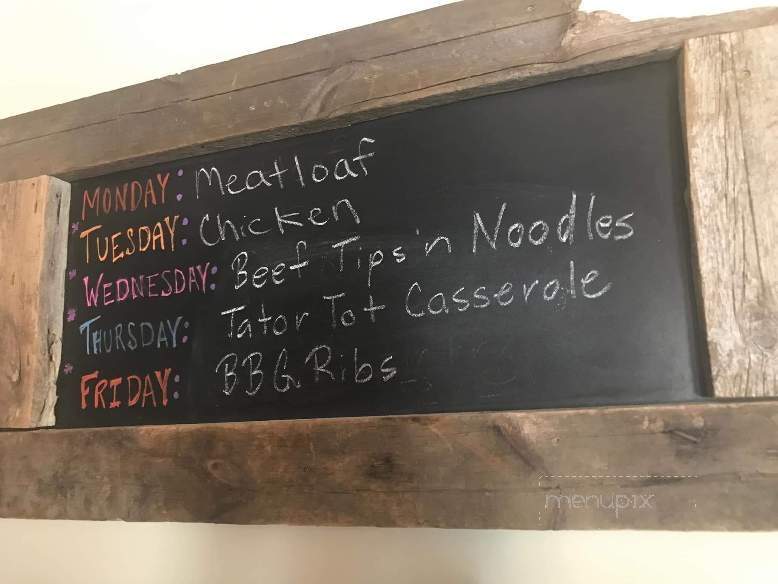 MONDAY: Meatloaf
TUESDAY: Chicken
WEDNESDAY: Beef Tips'n Noodles
THURSDAY: Tator Tot Casserole
FRIDAY: BBG Ribs
menupix